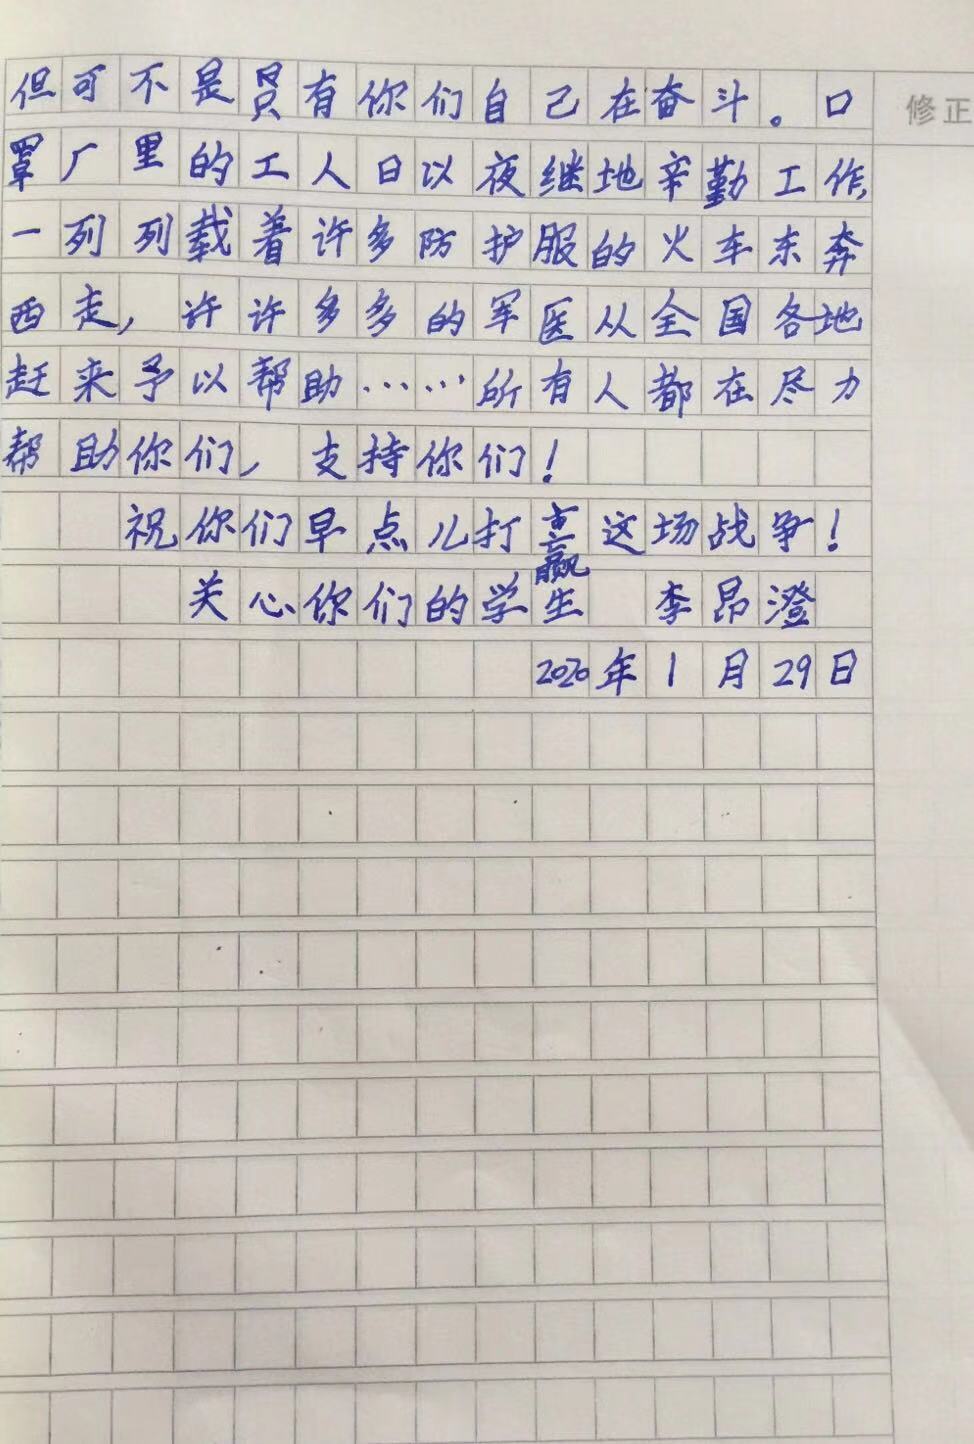 但可不是只有你们自己在奋斗。口
修正
罩厂里的工人日以夜继地辛勤工作,
一列列载着许多防护服的火车东奔
西走,许许多多的军医从全国各地
赶来予以帮助……所有人都在尽力
帮助你们,支持你们!
祝你们早点儿打赢这场战争!
关心你们的学生 李昂澄
2020年1月29日